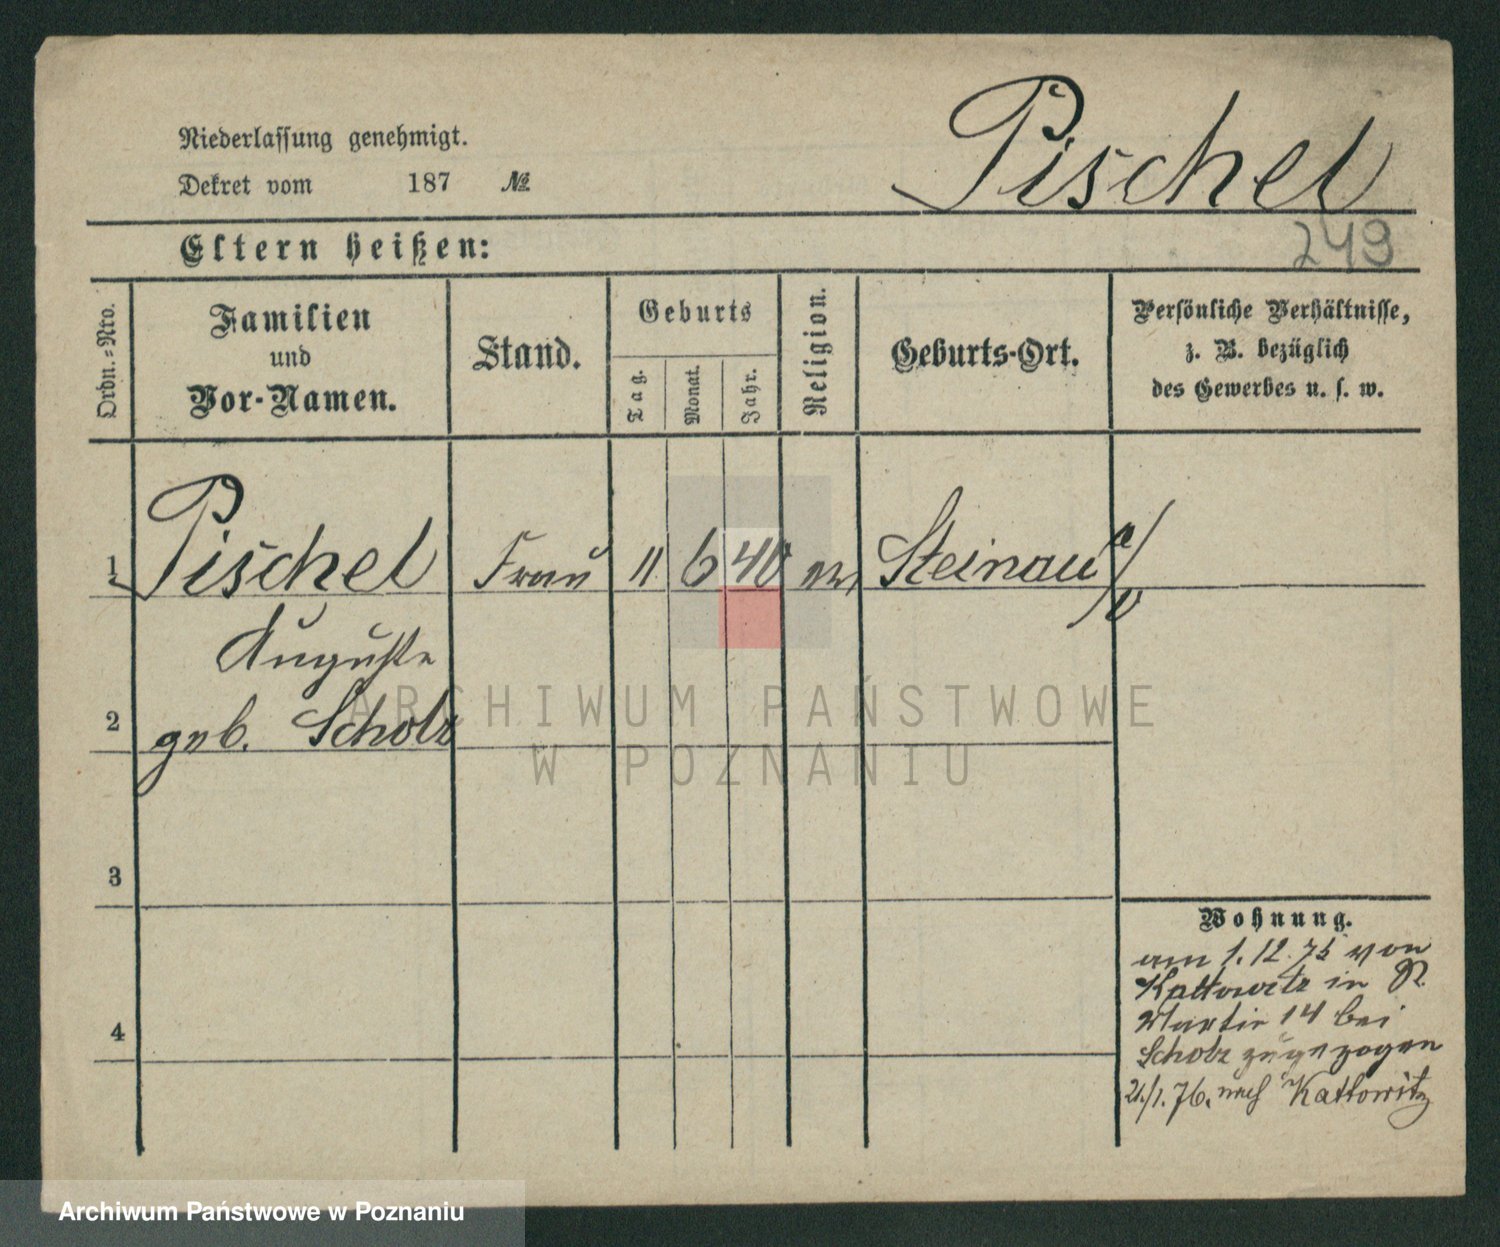 Pischel
Niederlassung genehmigt.
Dekret vom 187 №
249
Eltern heißen:
Ordn.=Nro.
Familien
und
Vor-Namen.
Stand.
Geburts
Tag.
Monat.
Jahr.
Religion.
Geburts-Ort.
Persönliche Verhältnisse,
z. B. bezüglich
des Gewerbes u. s. w.
1 Pischel Frau 11 6 40 ev Steinau a/
Auguste
2 geb. Scholz
3
4
Wohnung.
am 1.12.75 von
Kattowitz in
Martin 14 bei
Scholz zugezogen
21/1.76. nach Kattowitz
ARCHIWUM PAŃSTWOWE
W POZNANIU
Archiwum Państwowe w Poznaniu